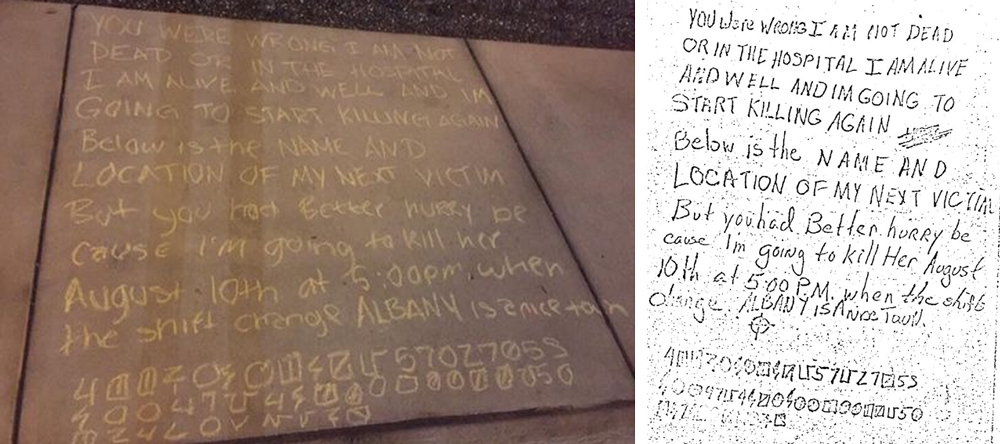 YOU WERE WRONG I AM NOT
DEAD OR IN THE HOSPITAL
I AM ALIVE AND WELL AND IM
GOING TO START KILLING AGAIN
Below is the NAME AND
LOCATION OF MY NEXT VICTIM
But you had Better hurry be
cause I'm going to kill her
August 10th at 5:00pm when
the shift change ALBANY is a nice town
YOU WERE WRONG I AM NOT DEAD
OR IN THE HOSPITAL I AM ALIVE
AND WELL AND IM GOING TO
START KILLING AGAIN
Below is the NAME AND
LOCATION OF MY NEXT VICTIM
But you had Better hurry be
cause I'm going to kill Her August
10th at 5:00 P.M. when the shift
change. ALBANY is A Nice Town.